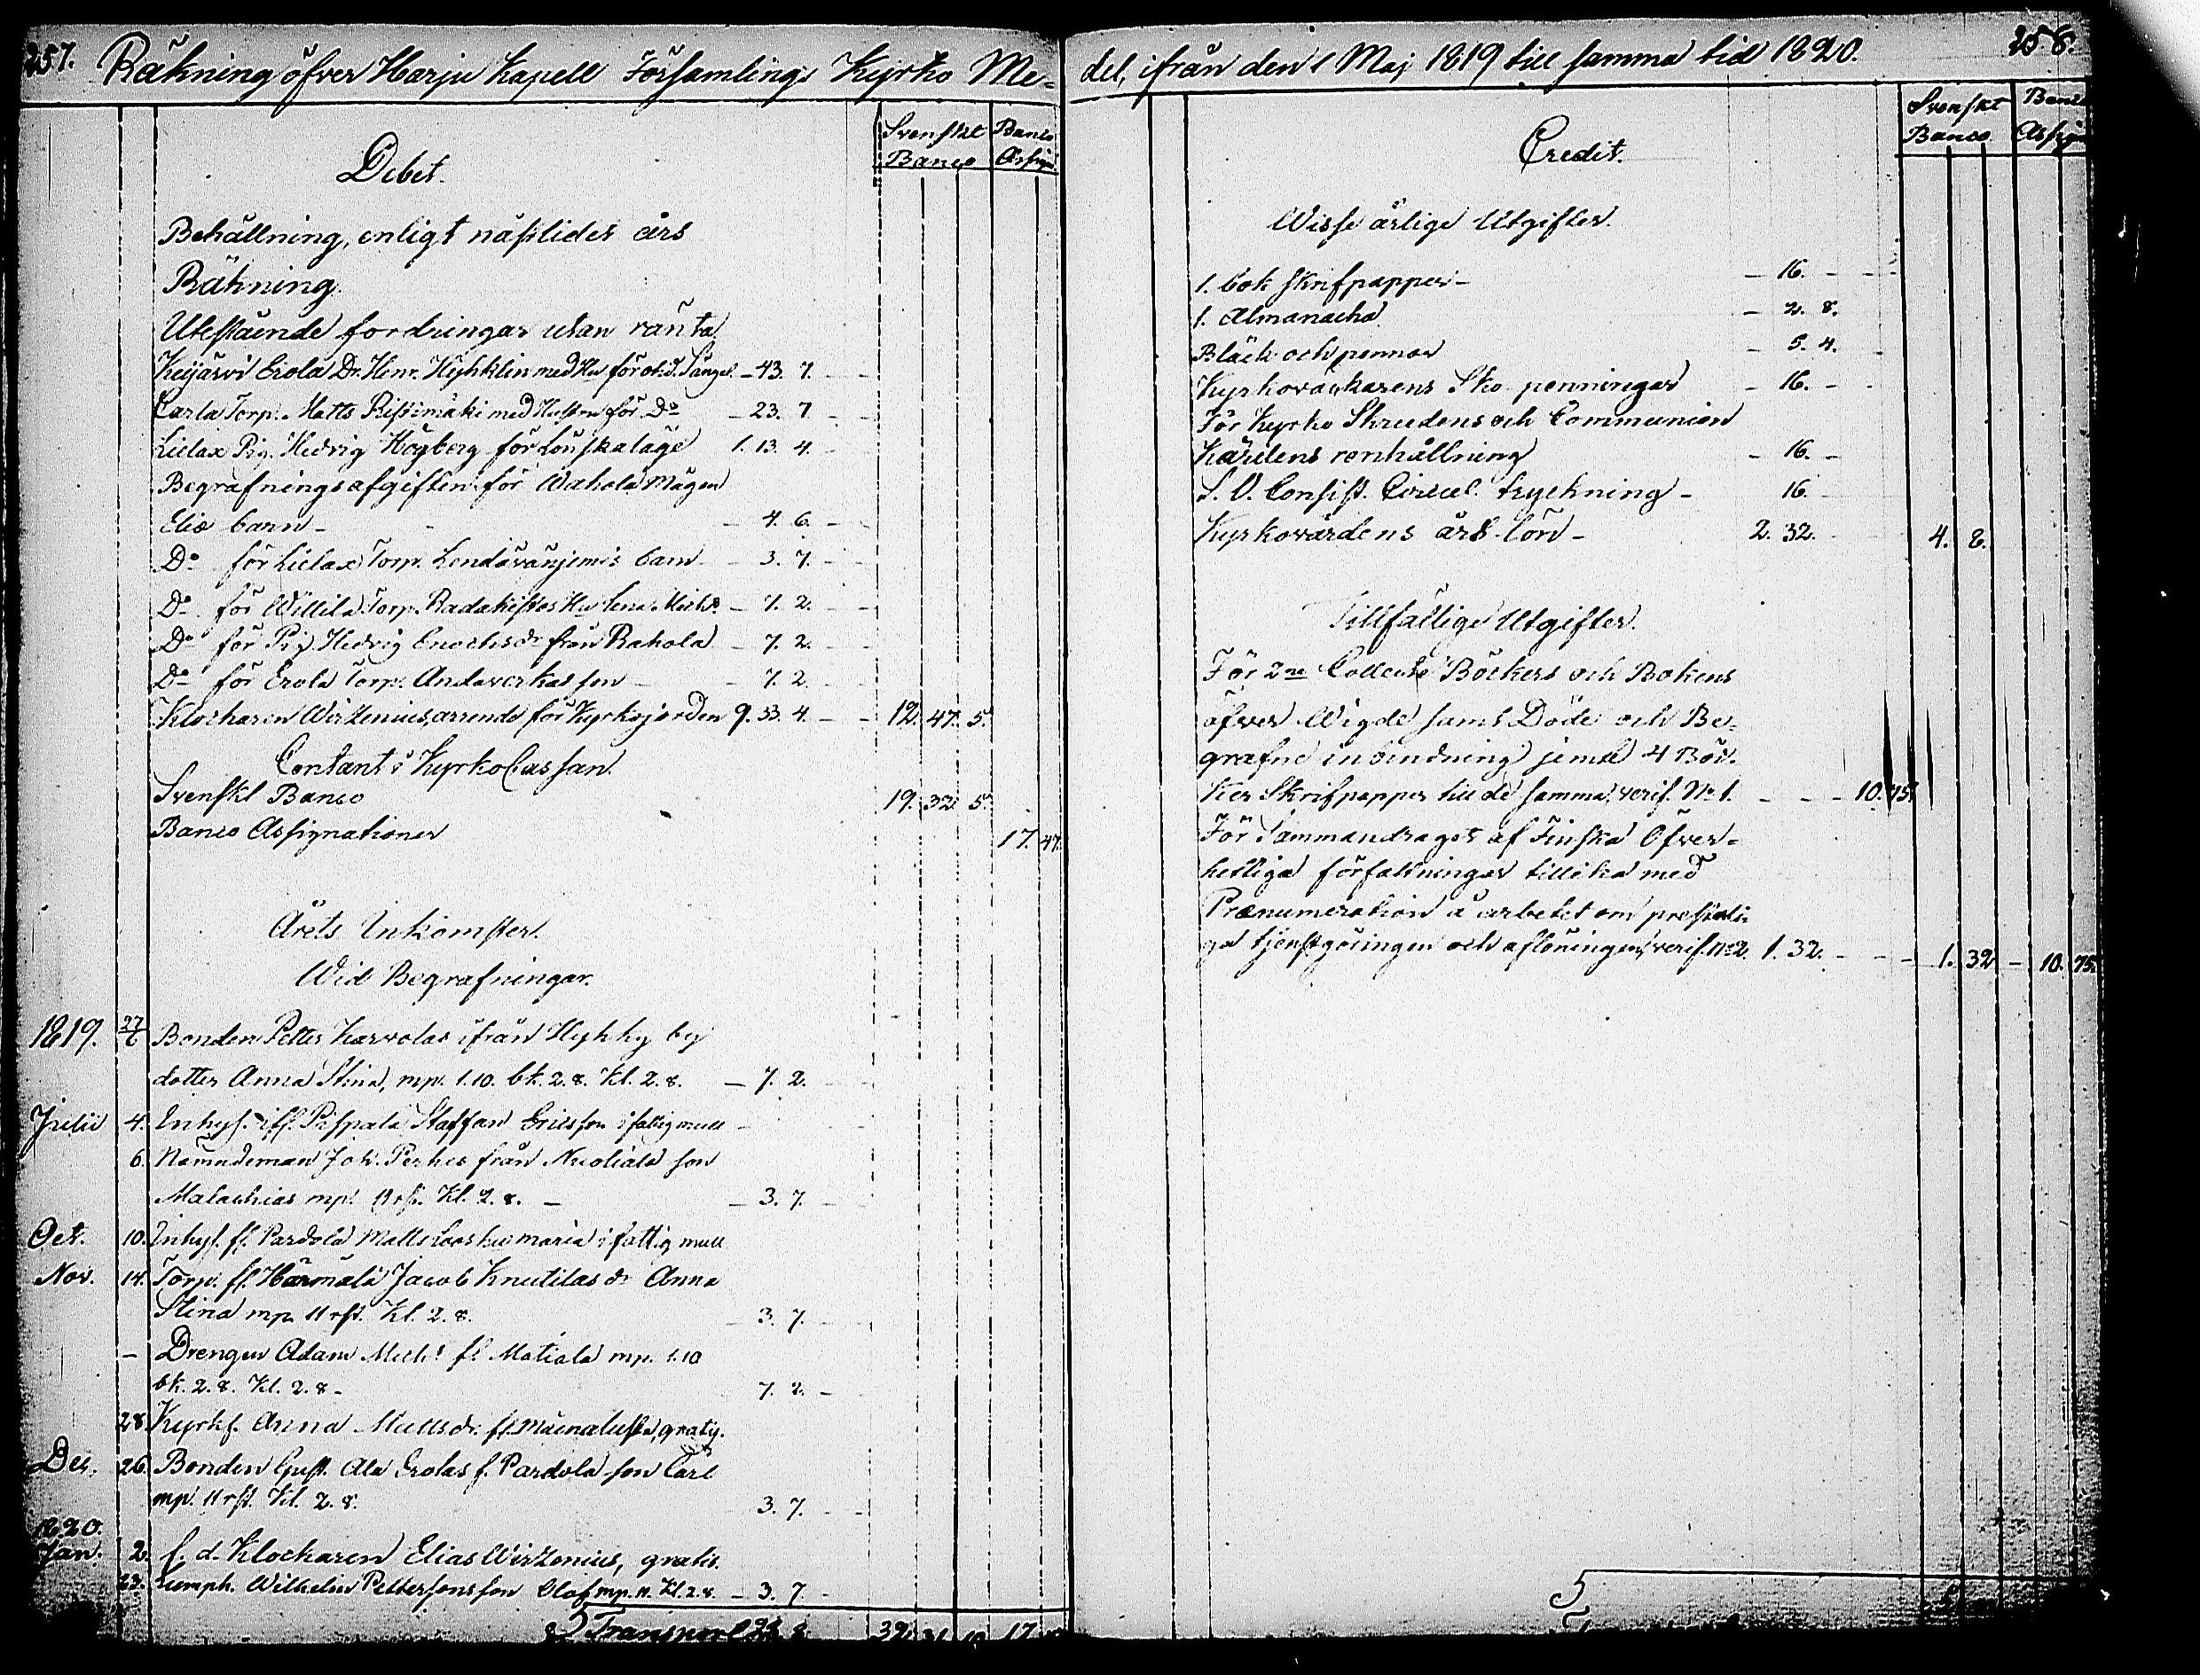 257.
Räkning öfver Harju Kapell Församlings Kyrko Me-
Svenskt Banco
Banco Assign.
Debet.
Behållning, enligt näslides års
Räkning.
Utestående fordringar utan ränta
Keijärvi Erola Dr. Henr. Hyhklin med Hu för ot.d. Sängel. - 43. 7.
Carla Torp. Matts Ristimäki med Hustru för Do - 23. 7.
Lielax Pig. Hedvig Högberg för Louskaläge 1. 13. 4.
Begrafningsafgiften för Wahola Mågen
Eliæ barn - 4. 6.
Do för Lielax Torp. barn 3. 7.
Do för Willila Torp. Hu Lena Michsdr - 7. 2.
Do för Pig. Hedvig Enochsdr från Rahola - 7. 2.
Do för Erola Torp. son - 7. 2.
Klockaren Wirzenius, arrende för Kyrkojorden 9. 33. 4. 12. 47. 5.
Contant i KyrkoCassan.
Svenskt Banco 19. 32. 5.
Banco Assignationer 17. 47.
Årets Inkomster.
Wid Begrafningar.
1819. 27/6 Bonden Petter Karvolas ifrån Hyhky by
dotter Anna Stina, mp. 1.10. bk. 2.8. Kl. 2.8. - 7. 2.
Julii 4. Inhys. ifr. Pispala Staffan Ericsson i fattig mull -
6. Nämndeman Joh. Perkes från Nuoliala son
Malachias mp. 11 rst. Kl. 2.8. - 3. 7.
Oct. 10. Inhys. fr. Pardola Matts Maria i fattig mull
Nov. 14. Torp. fr. Härmälä Jacob Knutilas dr Anna
Stina mp. 11 rst. Kl. 2.8. 3. 7.
- Drengen Adam Mich: fr Matiala mp. 1.10
bk. 2.8. Kl. 2.8 - 7. 2. -
28. Kyrkf. Anna Mattsdr. fr. gratis.
Dec. 26. Bonden Gust. Ala Erolas f. Pardola son Carl
mp. 11 rst. Kl. 2.8. 3. 7.
1820.
Jan. 2. f. d. Klockaren Elias Wirzenius, gratis.
23. Wilhelm Petterssons son Olof mp. 11. Kl. 2.8. - 3. 7.
Transport
258.
del, ifrån den 1 Maj 1819 till samma tid 1820.
Svenskt Banco
Banco Assign
Credit.
Wisse årlige Utgifter.
1. bok skrifpapper - - 16. -
1. Almanacha - 2. 8.
Bläck och pennor - 5. 4.
Kyrkovächarens Sko penningar - 16. -
För Kyrko Skrudens och Communion
Kärilens renhållning - 16. -
S. V. Consist. Circul. tryckning - 16.
Kyrkovärdens års lön - 2. 32. 4. 8.
Tillfällige Utgifter.
För 2ne Collect Böckers och Bokens
öfver Wigde samt Döde och Be-
grafne inbindning jemte 4 Böc-
ker Skrifpapper till de samma, verif. No 1. - - - 10. 75.
För Sammandraget af Finska Öfver-
hetliga författningar tillika med
Prænumeration å arbetet om prestli-
ga tjenstgöringen och aflöningen, verif. No 2. 1. 32. - - - 1. 32 - 10. 75.